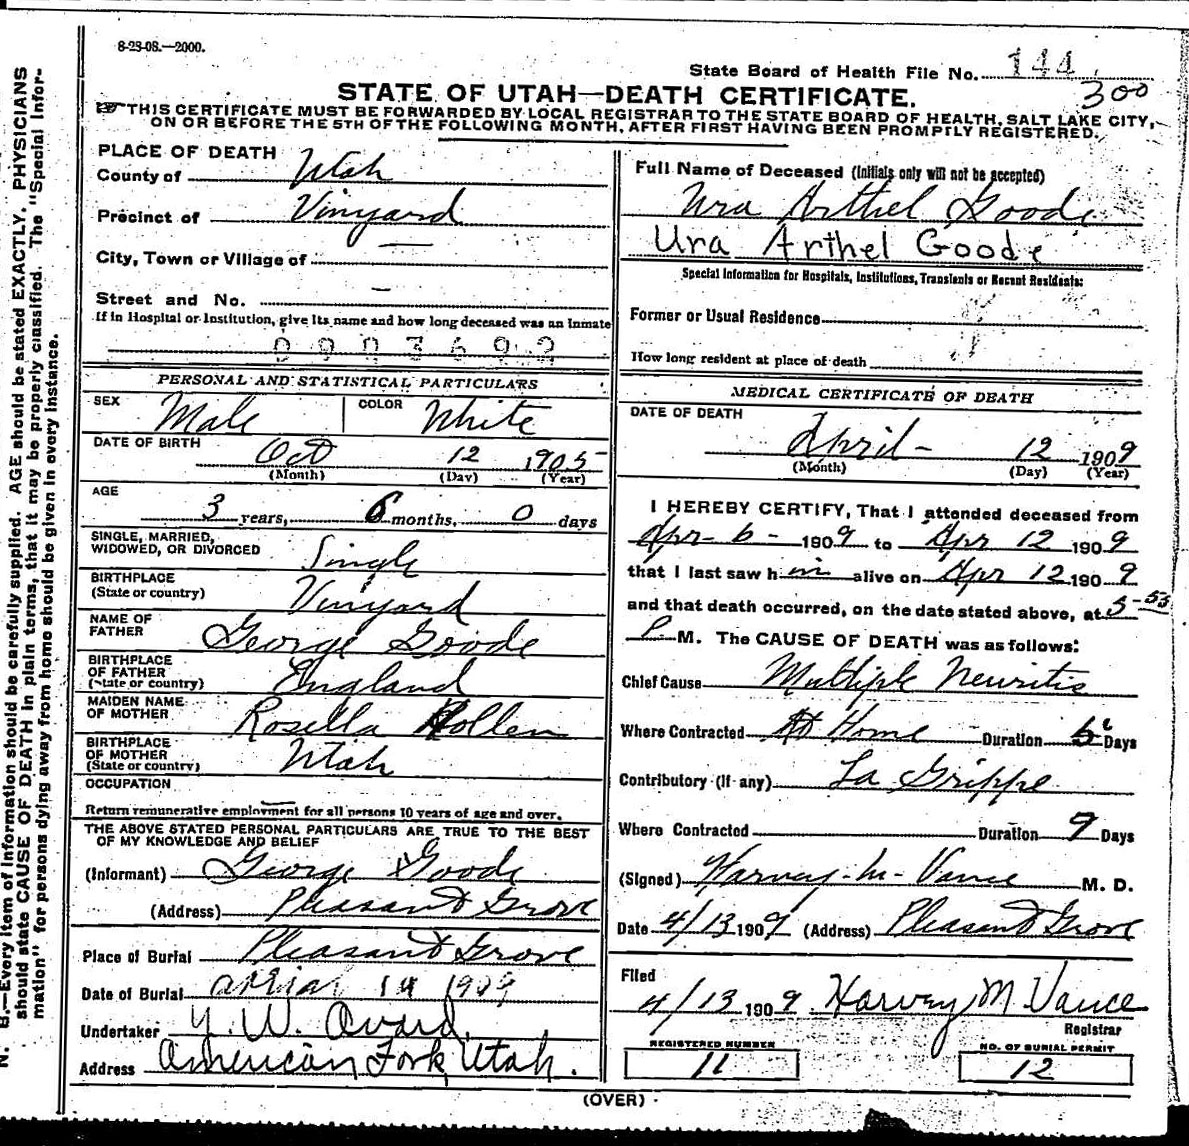 8-23-08.—2000.
State Board of Health File No. 144
300
STATE OF UTAH—DEATH CERTIFICATE.
THIS CERTIFICATE MUST BE FORWARDED BY LOCAL REGISTRAR TO THE STATE BOARD OF HEALTH, SALT LAKE CITY,
ON OR BEFORE THE 5TH OF THE FOLLOWING MONTH, AFTER FIRST HAVING BEEN PROMPTLY REGISTERED.
PLACE OF DEATH
County of Utah
Precinct of Vinyard
City, Town or Village of —
Street and No. —
If in Hospital or Institution, give its name and how long deceased was an Inmate
PERSONAL AND STATISTICAL PARTICULARS
SEX Male COLOR White
DATE OF BIRTH
Oct 12 1905
(Month) (Day) (Year)
AGE
3 years, 6 months, 0 days
SINGLE, MARRIED,
WIDOWED, OR DIVORCED Single
BIRTHPLACE
(State or country) Vinyard
NAME OF
FATHER George Goode
BIRTHPLACE
OF FATHER
(State or country) England
MAIDEN NAME
OF MOTHER Rosella Hollen
BIRTHPLACE
OF MOTHER
(State or country) Utah
OCCUPATION
Return remunerative employment for all persons 10 years of age and over.
THE ABOVE STATED PERSONAL PARTICULARS ARE TRUE TO THE BEST
OF MY KNOWLEDGE AND BELIEF
(Informant) George Goode
(Address) Pleasant Grove
Place of Burial Pleasant Grove
Date of Burial April 14 1909
Undertaker Y. W. Avard.
Address American Fork Utah.
Full Name of Deceased (Initials only will not be accepted)
Ura Arthel Goode
Ura Arthel Goode
Special Information for Hospitals, Institutions, Transients or Recent Residents:
Former or Usual Residence
How long resident at place of death
MEDICAL CERTIFICATE OF DEATH
DATE OF DEATH
April - 12 1909
(Month) (Day) (Year)
I HEREBY CERTIFY, That I attended deceased from
Apr - 6 - 1909 to Apr 12 1909
that I last saw him alive on Apr 12 1909
and that death occurred, on the date stated above, at 5-53
P M. The CAUSE OF DEATH was as follows:
Chief Cause Multiple Neuritis
Where Contracted At Home Duration 6 Days
Contributory (if any) La Grippe
Where Contracted Duration 9 Days
(Signed) Harvey - M - Vance M. D.
Date 4/13 1909 (Address) Pleasant Grove
Filed
4/13 1909 Harvey M Vance
Registrar
REGISTERED NUMBER
11
NO. OF BURIAL PERMIT
12
(OVER)
N. B.—Every item of information should be carefully supplied. AGE should be stated EXACTLY. PHYSICIANS
should state CAUSE OF DEATH in plain terms, that it may be properly classified. The "Special Infor-
mation" for persons dying away from home should be given in every instance.